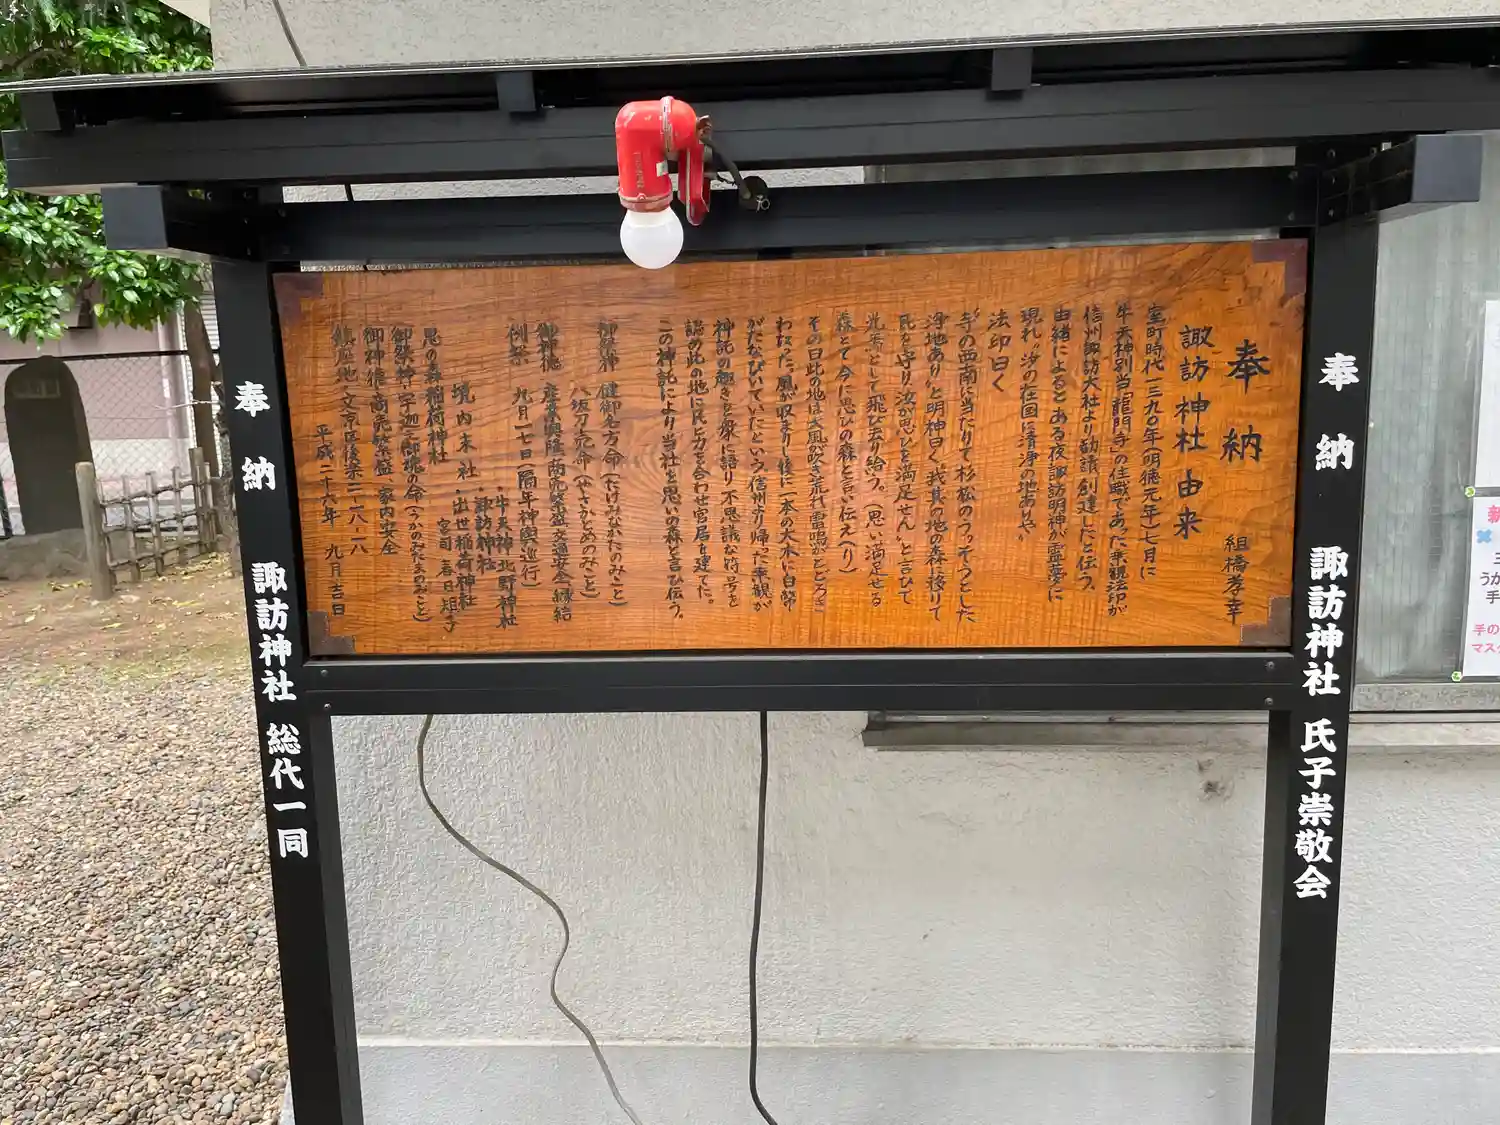 奉納
組橋孝幸
諏訪神社由来
室町時代一三九〇年(明徳元年)七月に
牛天神別当「龍門寺」の住職であった乗観法印が
信州諏訪大社より勧請創建したと伝う。
由緒によると ある夜諏訪明神が霊夢に
現れ 汝の在国に清浄の地ありや
法印曰く
寺の西南に当たりて杉松のうっそうとした
浄地あり と明神曰く 我其の地の森を接けて
民を守り汝が思ひを満足せん と言ひて
光虫として飛び去り給う。(思い満足せる
森とて今に思ひの森と言い伝え(り)
その日此の地は大風が吹き荒れ雷鳴がとどろき
わたった。風が収まりし後に一本の大木に白幣
がたなびいていたという信州より帰った乗観が
神託の趣きを衆に語り不思議な符号を
認め此の地に民と力を合わせ宮居を建てた。
この神託により当社を思いの森と言ひ伝う。
御祭神 健御名方命(たけみなかたのみこと)
八坂刀売命(やさかとめのみこと)
御神徳 産業興隆 商売繁盛 交通安全 縁結
例祭 九月二七日(隔年神輿巡行)
境内末社 ・牛天神北野神社
・諏訪神社
・出世稲荷神社
思の森稲荷神社
御祭神 宇迦之御魂の命(うかのみたまのみこと)
御神徳 商売繁盛、家内安全
鎮座地 文京区後楽二-一八-一八
平成二十六年 九月吉日
奉納 諏訪神社 氏子崇敬会
奉納 諏訪神社 総代一同